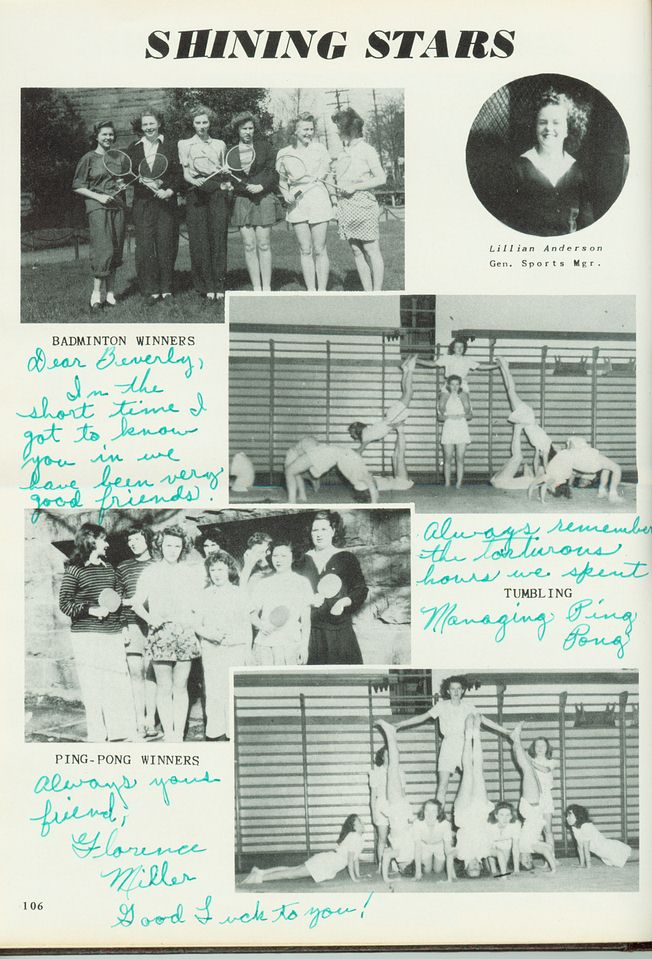 SHINING STARS
Lillian Anderson
Gen. Sports Mgr.
BADMINTON WINNERS
Dear Beverly,
In the
short time I
got to know
you in we
have been very
good friends.
Always remember
the torturous
hours we spent
TUMBLING
Managing Ping
Pong
PING-PONG WINNERS
Always your
friend,
Florence
Miller
Good Luck to you!
106